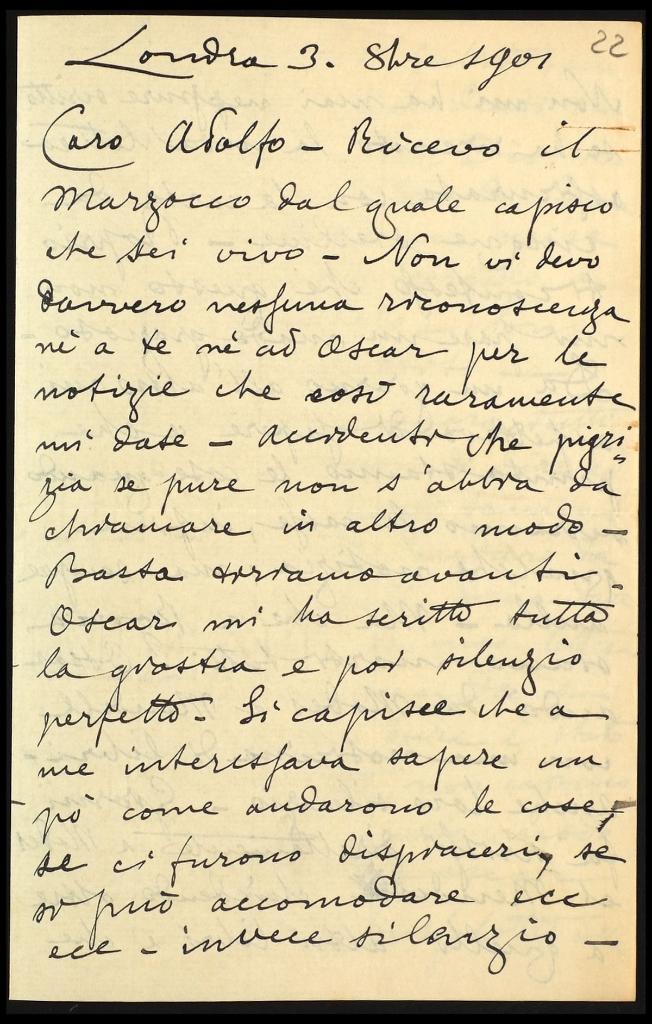 22
Londra 3. 8bre 1901
Caro Adolfo - Ricevo il
Marzocco dal quale capisco
che sei vivo - Non vi devo
davvero nessuna riconoscenza
nè a te nè ad Oscar per le
notizie che così raramente
mi date - Accidenti che pigri
zia se pure non s'abbia da
chiamare in altro modo -
Basta tiriamo avanti -
Oscar mi ha scritto tutta
la e poi silenzio
perfetto. Si capisce che a
me interessava sapere un
pò come andarono le cose,
se ci furono dispiaceri, se
si può accomodare ecc
ecc - invece silenzio -